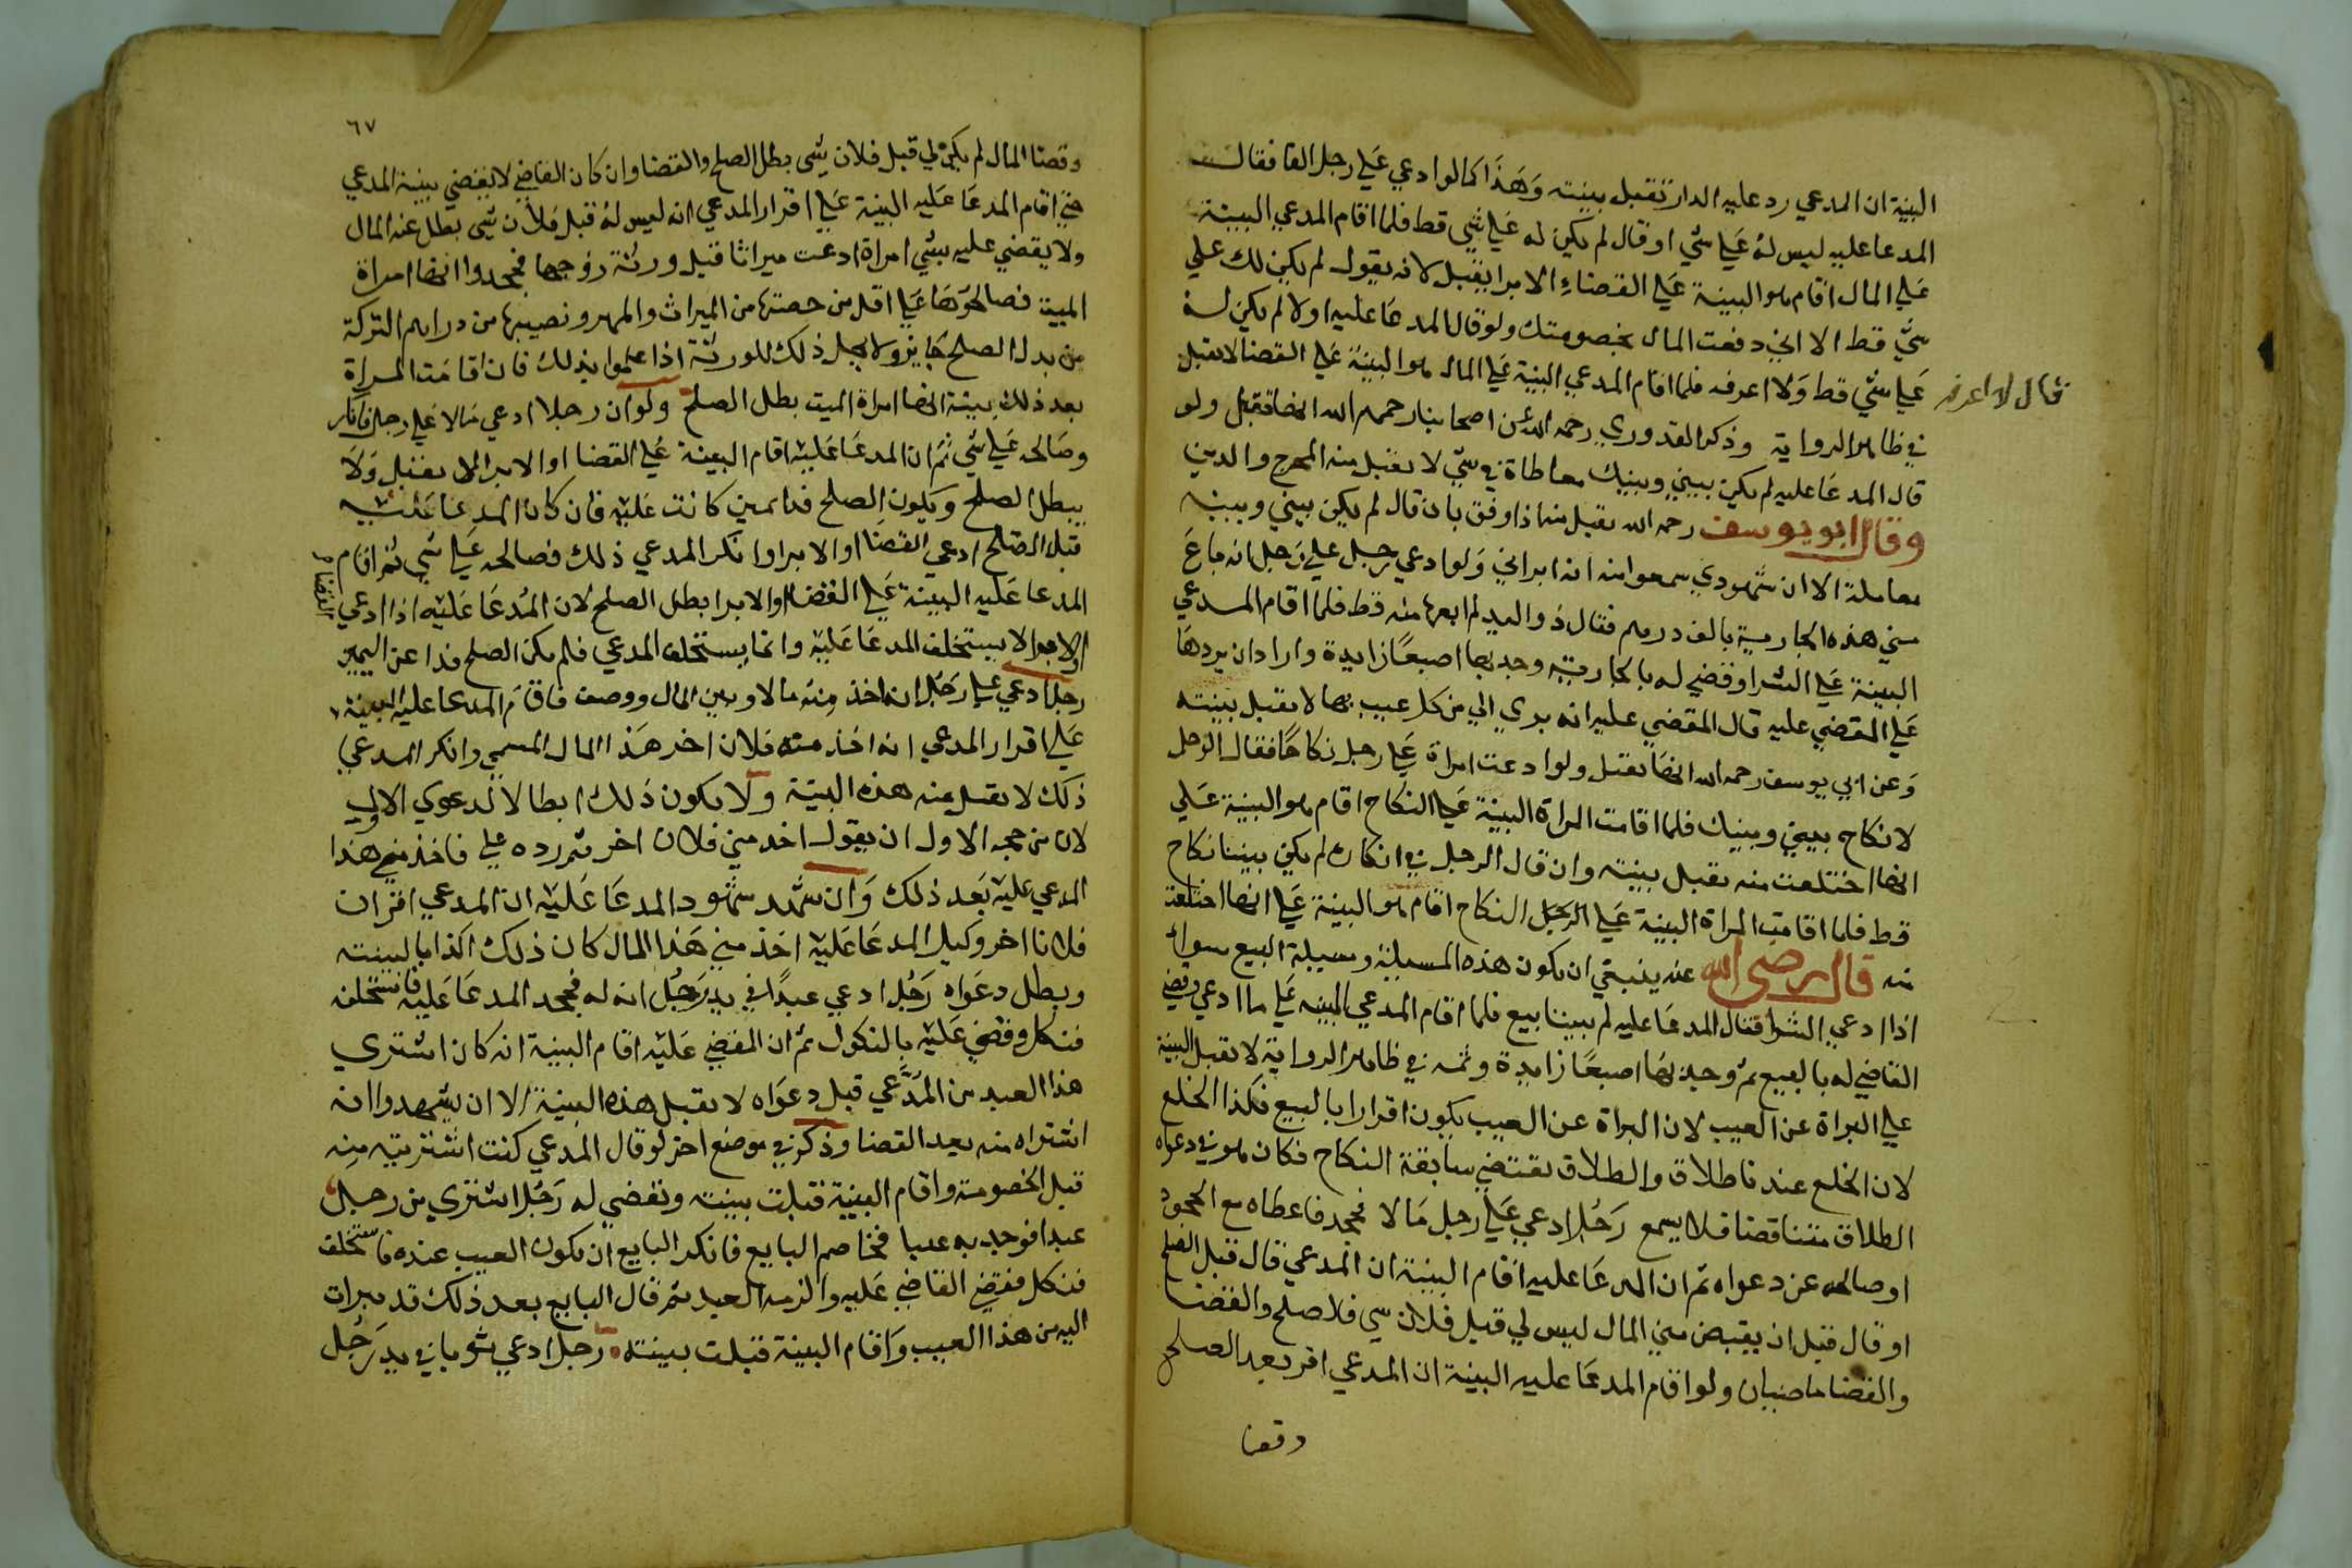 البينة ان المدعي رد عليه الدار تقبل بينته وهذا كما لو ادعي علي رجل الفا فقال
المدعا عليه ليس له علي شي او قال لم يكن له علي شي قط فلما اقام المدعي البينة
علي المال اقام هو البينة علي القضاء او الابرا يقبل لانه يقول لم يكن لك علي
شي قط الا اني دفعت المال بخصومتك ولو قال المدعا عليه اولا لم يكن له
علي شي قط ولا اعرفه فلما اقام المدعي البينة علي المال هو البينة علي القضا لا تقبل
قال لا اعرفه
في ظاهر الرواية وذكر القدوري رحمه الله عن اصحابنا رحمهم الله انها تقبل ولو
قال المدعا عليه لم يكن بيني وبينك معاطاة في شي لا تقبل منه المخرج والدين
وقال ابو يوسف رحمه الله تقبل منه اذا وفق بان قال لم يكن بيني وبينه
معاملة الا ان شهودي سمعوا منه انه ابراني ولو ادعي رجل علي رجل انه باع
مني هذه الجارية بالف درهم فقال ذو اليد لم ابعها منه قط فلما اقام المدعي
البينة علي الشرا وقضي له بالجارية وجد بها اصبعا زايدة واراد ان يردها
علي المقضي عليه قال المقضي عليه انه بري الي من كل عيب بها لا تقبل بينته
وعن ابي يوسف رحمه الله انها تقبل ولو ادعت امراة علي رجل نكاحا فقال الرجل
لا نكاح بيني وبينك فلما اقامت المراة البينة علي النكاح اقام هو البينة علي
انها اختلعت منه تقبل بينته وان قال الرجل في انكاره لم يكن بيننا نكاح
قط فلما اقامت المراة البينة علي الرجل النكاح اقام هو البينة علي انها اختلعت
منه قال رضي الله عنه ينبغي ان يكون هذه المسيلة ومسيلة البيع سواء
اذا ادعي الشرا فقال المدعا عليه لم بيننا بيع فلما اقام المدعي البينه علي ما ادعي وقضي
القاضي له بالبيع ثم وجد بها اصبعا زايدة وثمه في ظاهر الرواية لا تقبل البينة
علي البراة عن العيب لان البراة عن العيب يكون اقرارا بالبيع فكذا الخلع
لان الخلع عندنا طلاق والطلاق يقتضي سابقة النكاح فكان هو في دعواه
الطلاق متناقضا فلا يسمع رجل ادعي علي رجل مالا فجحد فاعطاه مع الجحود
او صالحه عن دعواه ثم ان المدعا عليه اقام البينة ان المدعي قال قبل الصلح
او قال قبل ان يقبض مني المال ليس لي قبل فلان شي فلا صلح والقضا
والقضا ماضيان ولو اقام المدعا عليه البينة ان المدعي اقر بعد الصلح
وقضا
٦٧
وقضا المال لم يكن لي قبل فلان شي بطل الصلح والقضا وان كان القاضي لا يقضي ببينة المدعي
حتي اقام المدعا عليه البينة علي اقرار المدعي انه ليس له قبل فلان شي بطل عنه المال
ولا يقضي عليه بشي امراة ادعت ميراثا قبل ورثة زوجها فجحدوا انها امراة
الميت فصالحوها علي اقل من حصتها من الميراث والمهر ونصيبها من دراهم التركة
من بدل الصلح جايز ولا يحل ذلك للورثة اذا علموا بذلك فان اقامت المراة
بعد ذلك بينة انها امراة الميت بطل الصلح ولو ان رجلا ادعي مالا علي رجل فانكر
وصالحه علي شي ثم ان المدعا عليه اقام البينة علي القضا او الابرا لا تقبل ولا
يبطل الصلح ويكون الصلح فدا يمين كانت عليه فان كان المدعا عليه
قبل الصلح ادعي القضا او الابرا وانكر المدعي ذلك فصالحه علي شي ثم اقام
المدعا عليه البينة علي القضا او الابرا بطل الصلح لان المدعا عليه اذا ادعي
القضا
او الابرا لا يستحلف المدعا عليه وانما يستحلف المدعي فلم يكن الصلح فدا عن اليمين
رجل ادعي علي رجل انه اخذ منه مالا وبين المال ووصف فاقام المدعا عليه البينة
علي اقرار المدعي انه اخذ منه فلان اخر هذا المال المسمي وانكر المدعي
ذلك لا تقبل منه هذه البينة ولا يكون ذلك ابطالا لدعوي الاولي
لان من حجه الاول ان يقول اخد مني فلان اخر ثم رده علي فاخذ مني هذا
المدعي عليه بعد ذلك وان شهد شهود المدعا عليه ان المدعي اقر ان
فلانا اخر وكيل المدعا عليه اخذ مني هذا المال كان ذلك اكذابا لبينته
وبطل دعواه رجل ادعي عبدا في يد رجل انه له فجحد المدعا عليه فاستحلف
فنكل وقضي عليه بالنكول ثم ان المقضي عليه اقام البينة انه كان اشتري
هذا العبد من المدعي قبل دعواه لا تقبل هذه البينة الا ان يشهدوا انه
اشتراه منه بعد القضا وذكر في موضع اخر لو قال المدعي كنت اشتريته منه
قبل الخصومة واقام البينة قبلت بينته وتقضي له رجل اشتري من رجل
عبدا فوجد به عيبا فخاصم البايع فانكر البايع ان يكون العيب عنده فاستحلف
فنكل فقضي القاضي عليه والزمه العبد ثم قال البايع بعد ذلك قد تبرات
اليه من هذا العيب واقام البينة قبلت بينته رجل ادعي ثوبا في يد رجل